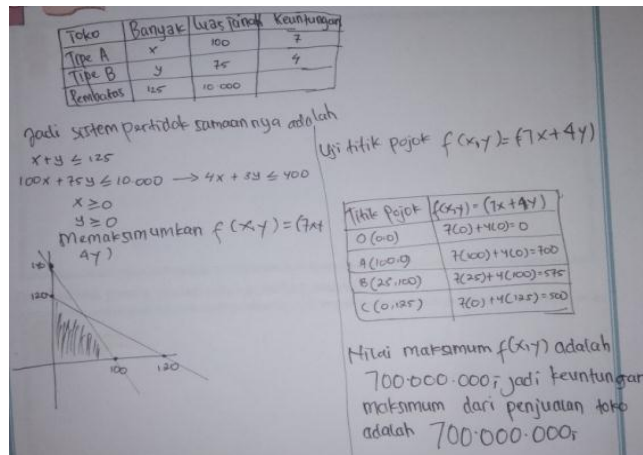 Toko Banyak Luas Tanah Keuntungan
Tipe A x 100 7
Tipe B y 75 4
Pembatas 125 10.000
Jadi sistem pertidak samaannya adalah
x+y ≤ 125
100x + 75y ≤ 10.000 → 4x + 3y ≤ 400
x ≥ 0
y ≥ 0
Memaksimumkan f(x,y) = (7x+
4y)
120
100 120
Uji titik pojok f(x,y) = (7x+4y)
Titik Pojok f(x,y) = (7x+4y)
O (0.0) 7(0)+4(0)=0
A (100.0) 7(100)+4(0)=700
B (25,100) 7(25)+4(100)=575
C (0,125) 7(0)+4(125)=500
Nilai maksimum f(x,y) adalah
700.000.000; jadi keuntungan
maksimum dari penjualan toko
adalah 700.000.000;